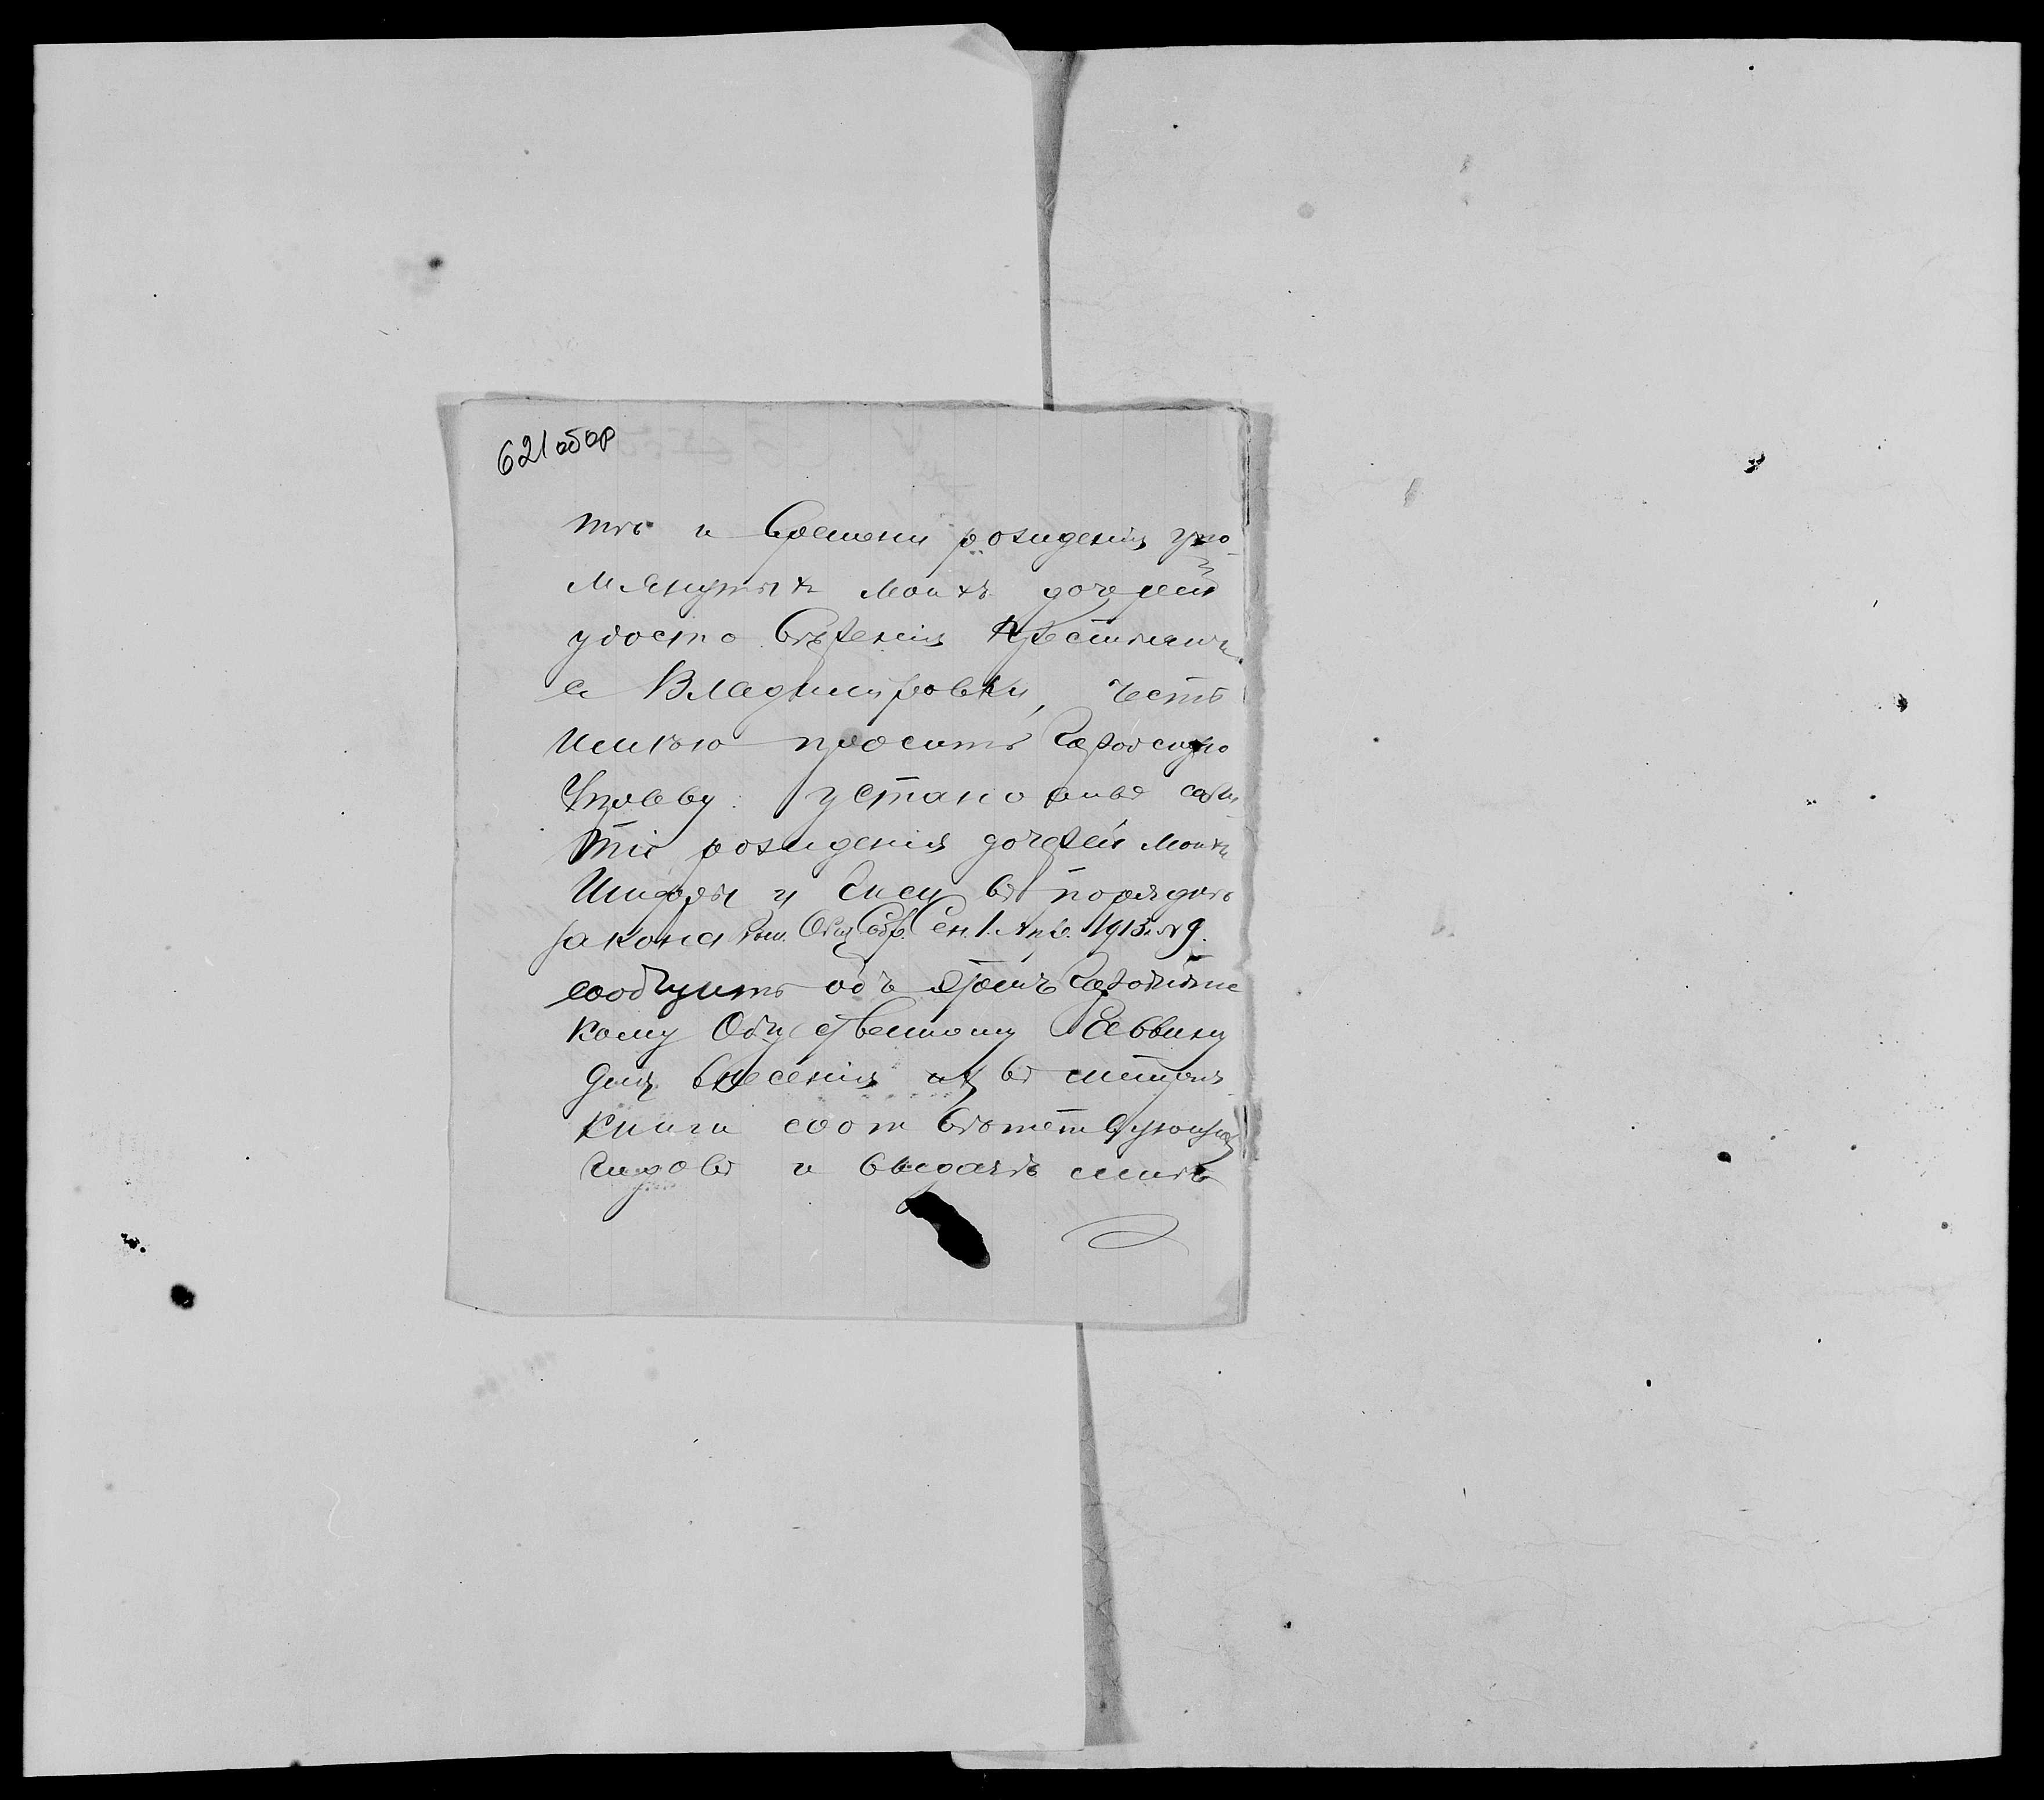 621 обор
тъ и времени рожденія упо-
мянутыхъ моихъ дочерей
удостоверенія крестьянъ
с Владимировки, честь
имею просить Городскую
Управу установивъ собы
тіе рожденія дочерей моихъ
и въ порядкъ
закона Общ. Собр. Сен. 1. Апр. 1913. N 9.
сообщить объ этомъ
кому Общественному Раввину
для внесенія ихъ въ метрич.
книги соотвътствующихъ
годовъ и выдать мнъ